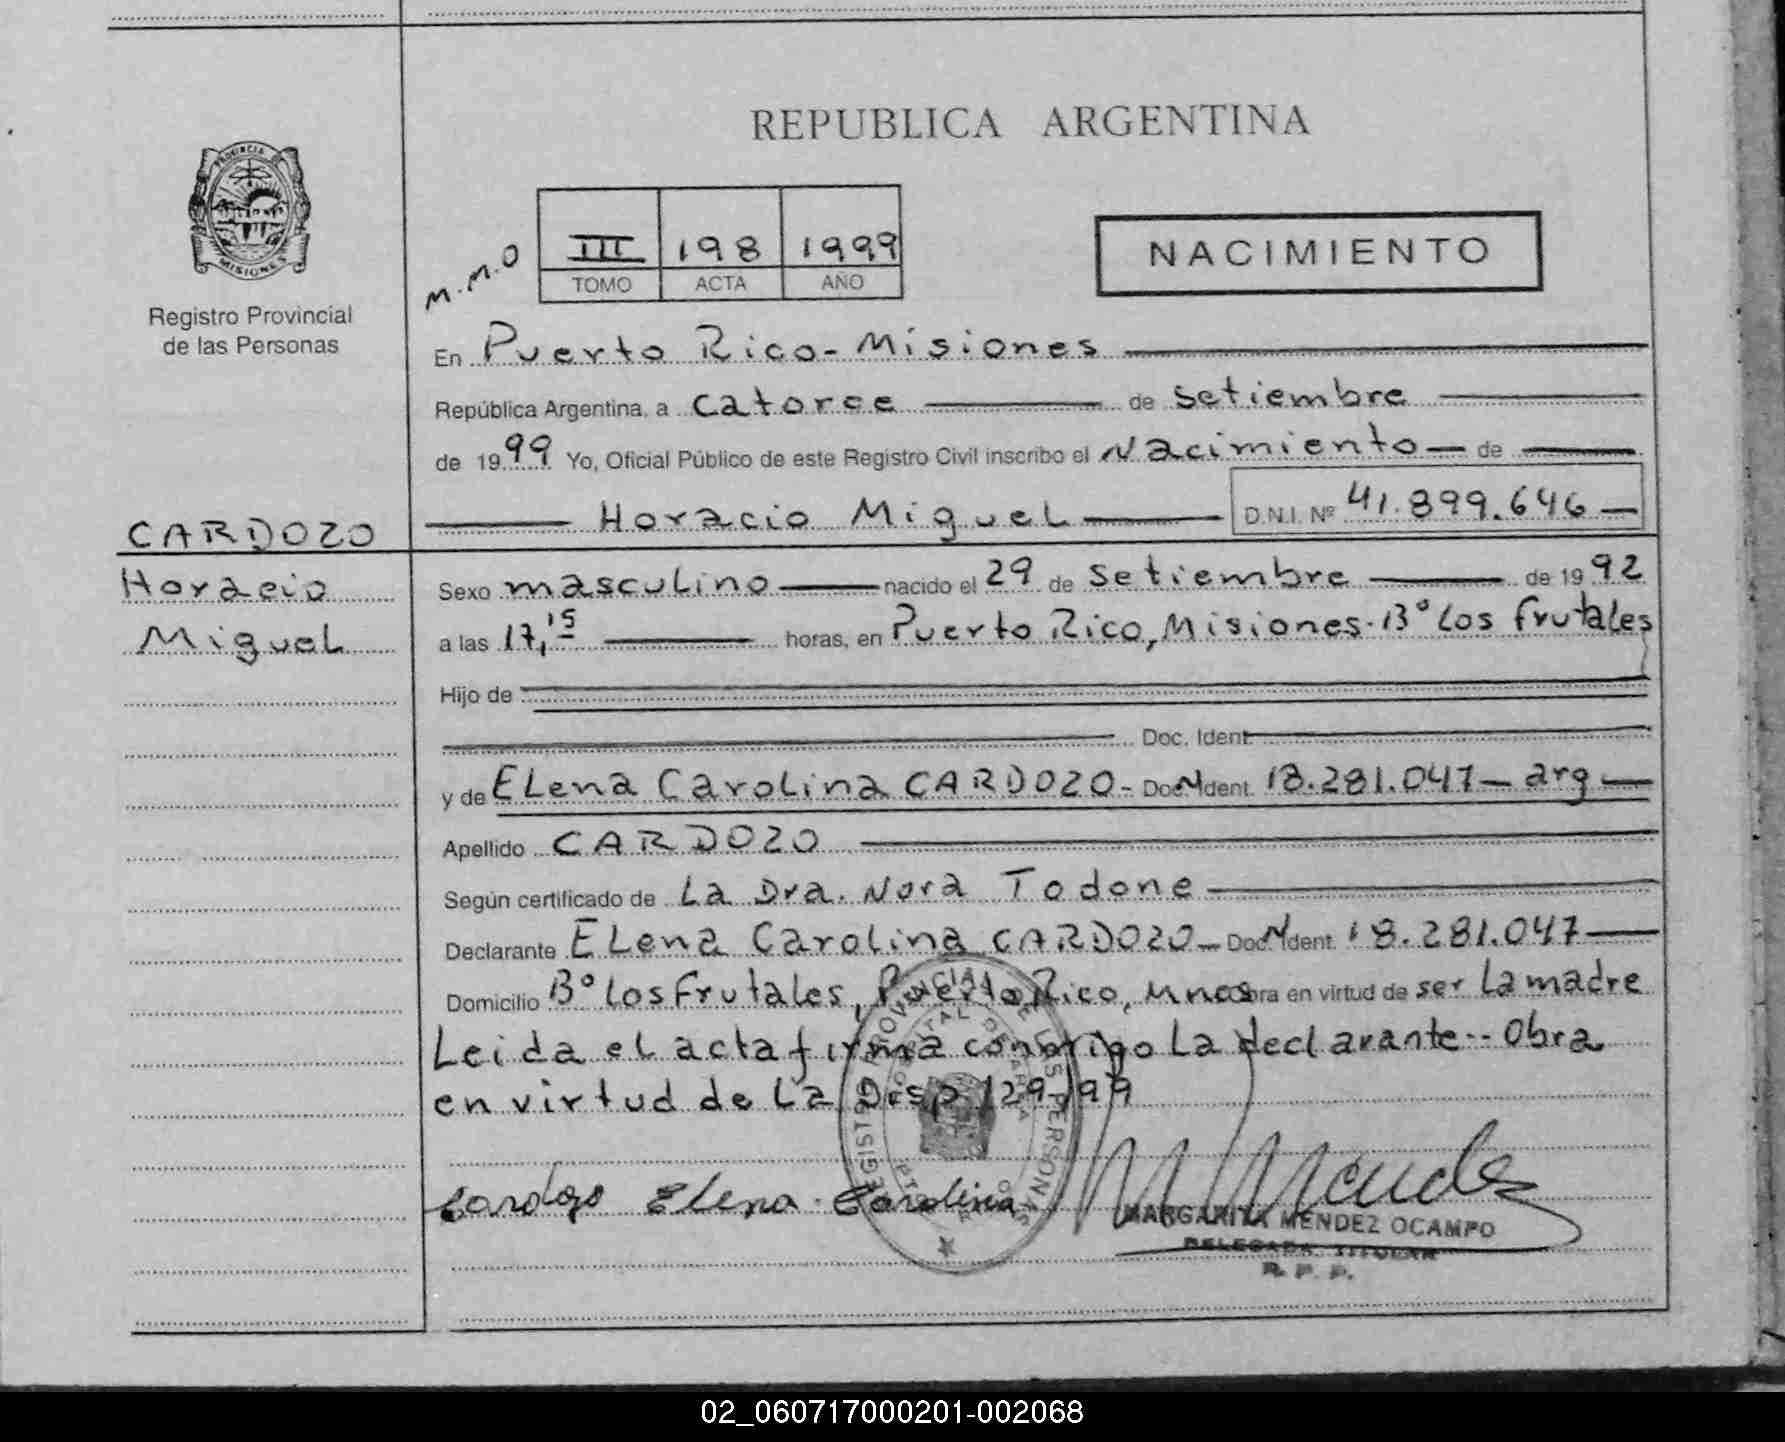 REPUBLICA ARGENTINA
PROVINCIA DE
MISIONES
Registro Provincial
de las Personas
M.M.O
III 198 1999
TOMO ACTA AÑO
NACIMIENTO
En Puerto Rico - Misiones
República Argentina, a catorce de setiembre
de 1999 Yo, Oficial Público de este Registro Civil inscribo el Nacimiento de
Horacio Miguel D.N.I. Nº 41.899.646
CARDOZO
Horacio
Miguel
Sexo masculino nacido el 29 de setiembre de 1992
a las 17,15 horas, en Puerto Rico, Misiones. Bº Los frutales
Hijo de
Doc. Ident.
y de Elena Carolina CARDOZO - Doc. Ident. 18.281.047 - arg
Apellido CARDOZO
Según certificado de La Dra. Nora Todone
Declarante Elena Carolina CARDOZO - Doc. Ident. 18.281.047
Domicilio Bº Los Frutales, Puerto Rico, Mnes obra en virtud de ser La madre
Leida el acta firma conmigo La declarante -- Obra
en virtud de La Disp 129/99
Cardozo Elena Carolina
M Mendez
MARGARITA MENDEZ OCAMPO
DELEGADA TITULAR
R. P. P.
REGISTRO PROVINCIAL DE LAS PERSONAS
02_060717000201-002068